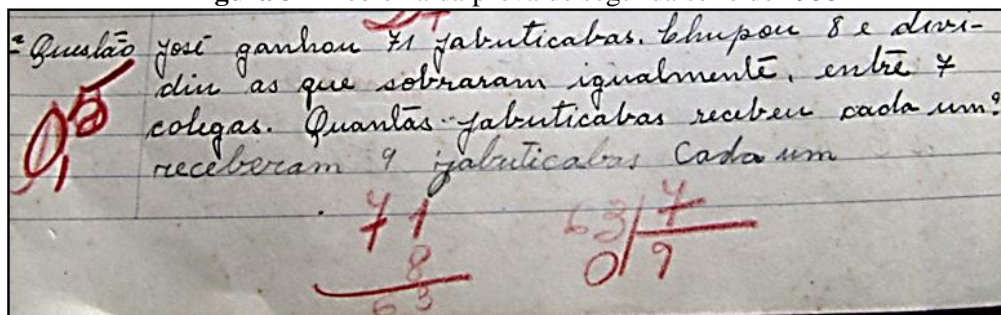 ª Questão José ganhou 71 jabuticabas. Chupou 8 e divi-
diu as que sobraram igualmente, entre 7
colegas. Quantas jabuticabas recebeu cada um?
receberam 9 jabuticabas Cada um
71 63 7
8 0 9
63